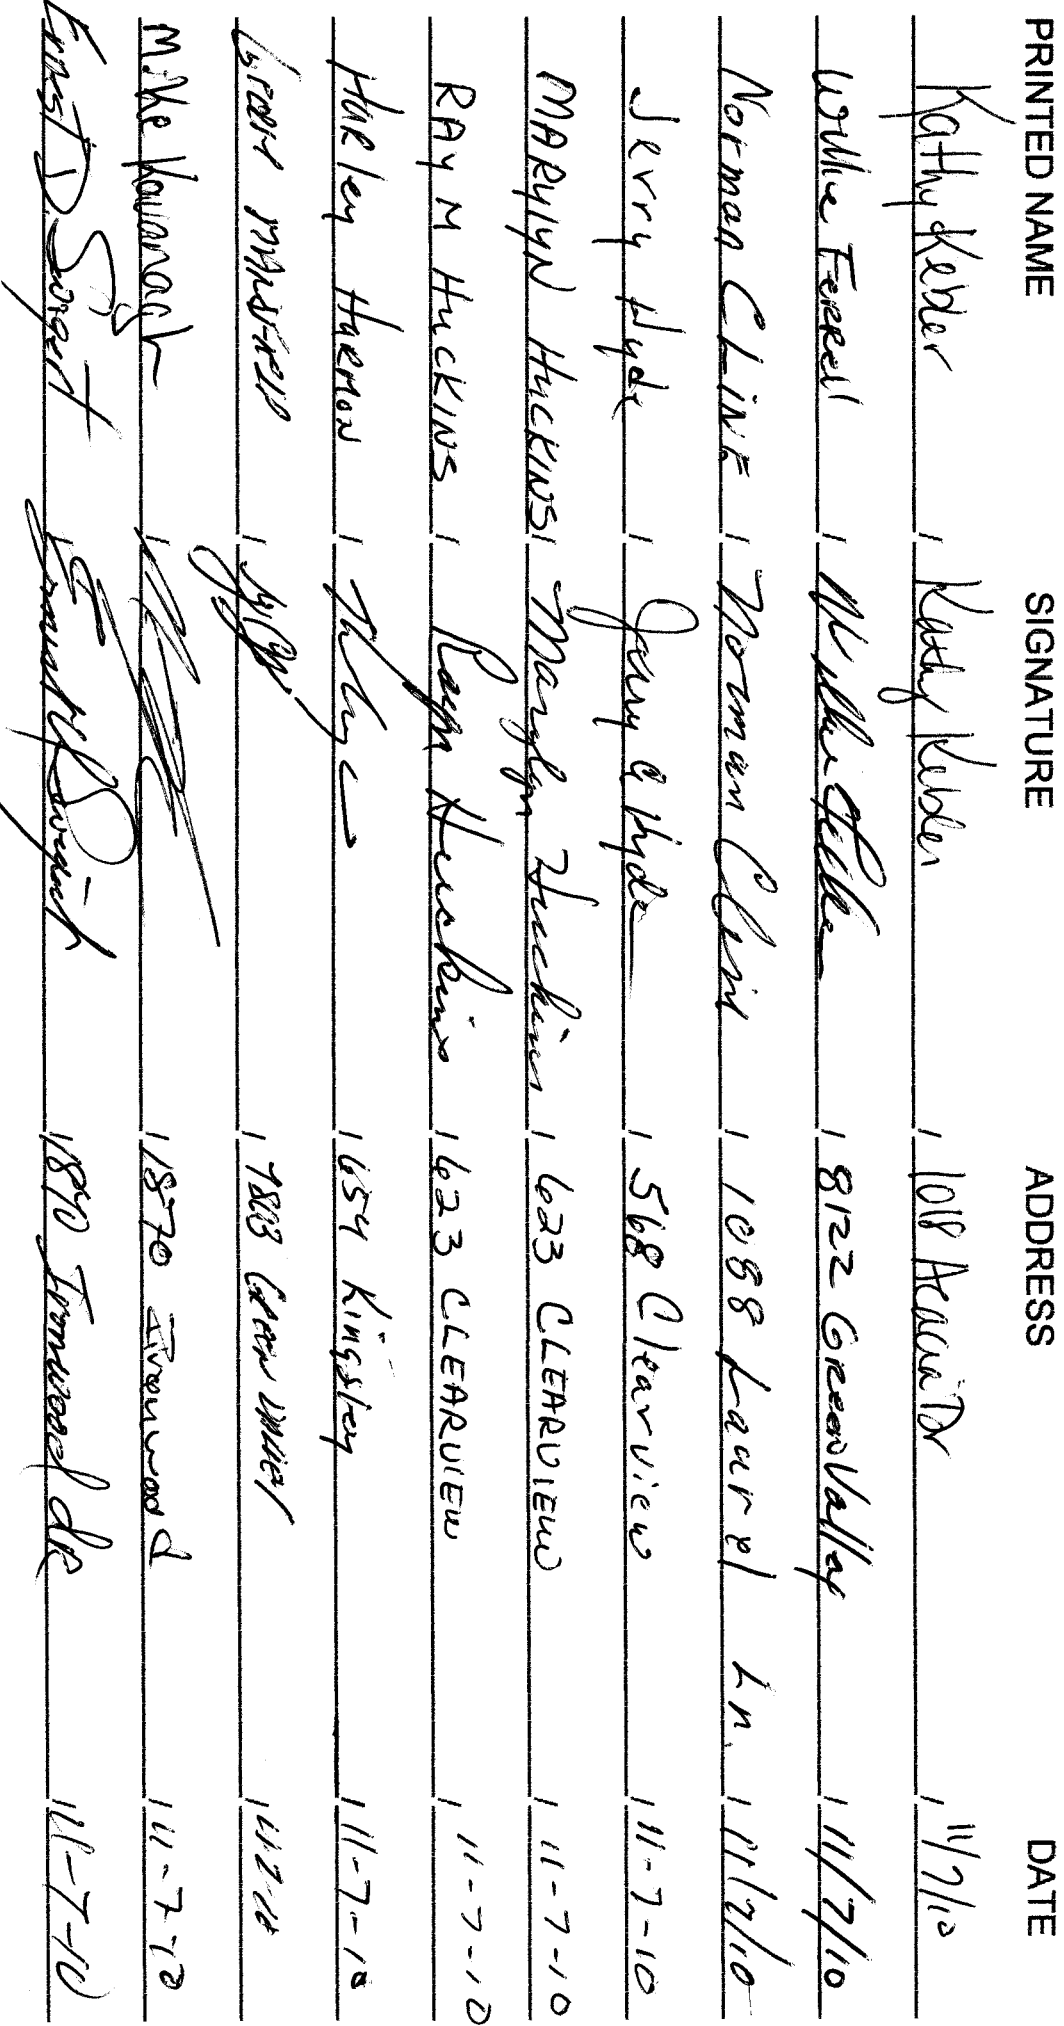 PRINTED NAME SIGNATURE ADDRESS DATE
Kathy Kebler / Kathy Kebler / 1018 Acacia Dr / 11/7/10
Willie Ferrell / Willie / 8122 Green Valley / 11/7/10
Norman CLINE / Norman Cline / 1088 Laurel Ln. / 11/7/10
Jerry Hyde / Jerry A Hyde / 568 Clearview / 11-7-10
MARYLYN HUCKINS / Marylyn Huckins / 623 CLEARVIEW / 11-7-10
RAY M HUCKINS / Ray M Huckins / 623 CLEARVIEW / 11-7-10
HARley HARMON / / 654 Kingsley / 11-7-10
/ / 7803 Green Valley / 11-7-10
Mike Kavanagh / / 1870 Ironwood / 11-7-10
Ernst D. / / 1870 Ironwood dR / 11-7-10